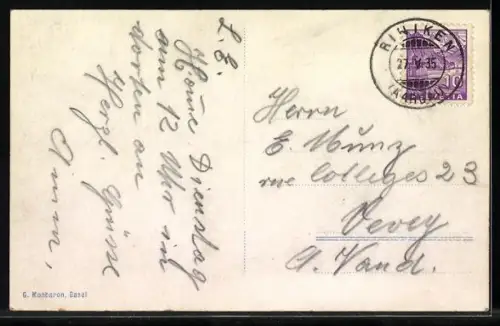 L. E.
Home Dienstag
am 12 Uhr in
dorten an
Herzl. Grüsse
RINIKEN
27. V. 35
(AARGAU)
10
Herrn
E. Munz
rue Colleges 23
Vevey
Ct. Vaud.
G. Monbaron, Basel